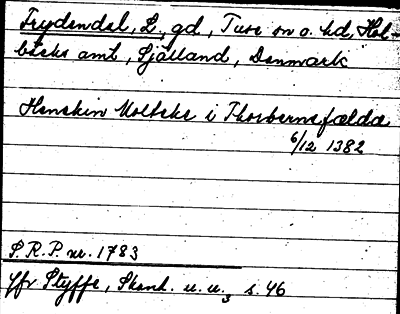 Frydendal, L, gd, Tuse sn o. hd, Hol-
bæks amt, Själland, Danmark
Henekin Molteke i Thorbernsfælde
6/12 1382
S.R.P. nr. 1783
Jfr Styffe, Skand. u. u.3 s. 46